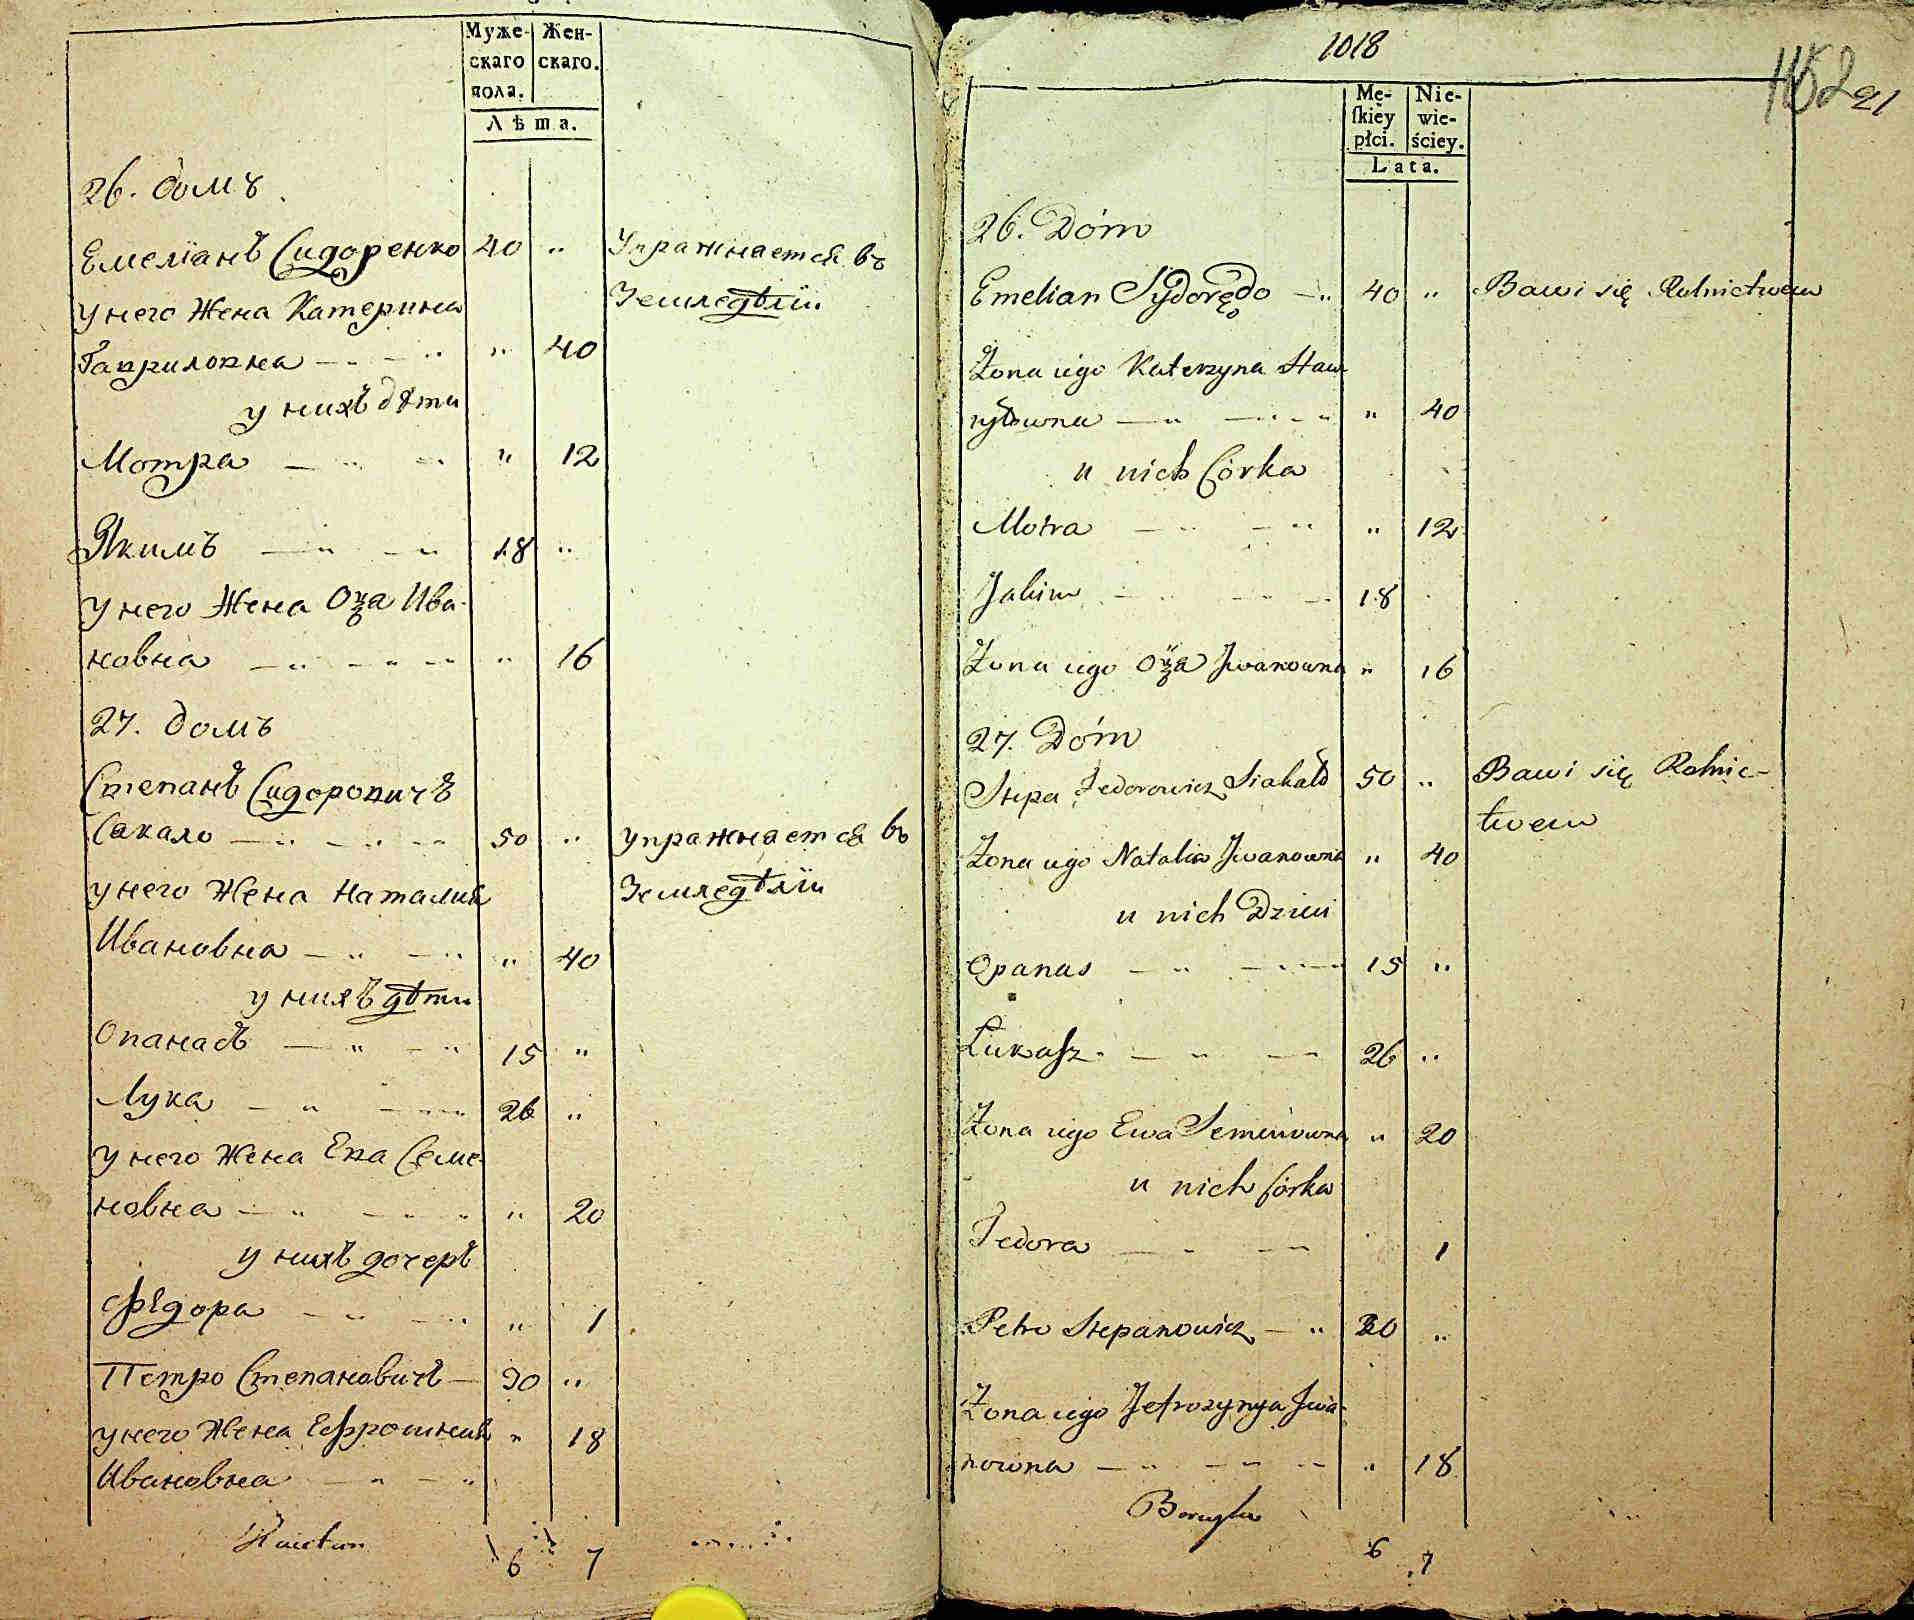 Муже- Жен-
скаго скаго.
пола.
Лѣта.
26. домъ
Емеліанъ Сидоренко 40 " Упражнается въ
у него Жена Катерина Земледѣліи
Гавриловна — " — " " 40
у нихъ дѣти
Мотра — " — " " 12
Якимъ — " — " 18 "
у него Жена Ива-
новна — " — " — " " 16
27. домъ
Степанъ Сидоровичъ
Сакало — " — " — 50 " упражнается въ
у него Жена Наталия Земледѣліи
Ивановна — " — " " 40
у нихъ дѣти
Опанасъ — " — " 15 "
Лука — " — " 26 "
у него Жена Ева Семе-
новна — " — " " 20
у нихъ дочеръ
Федора — " — " " 1
Петро Степановичъ — 30 "
у него Жена Ефросиния " 18
Ивановна — " — "
6 7
1018
91
Mę- Nie-
skiey wie-
płci. ściey.
Lata.
26. Dóm
Emelian — " 40 " Bawi się Rolnictwem
Żona iego Katerzyna Haw-
ryłowna — " — " " 40
u nich Córka
Motra — " — " " 12
Jakim — " — " 18
Żona iego Jwanowna " 16
27. Dóm
Stepa Fedorowicz Siakało 50 " Bawi się Rolnic-
Żona iego Natalia Jwanowna " 40 twem
u nich Dzieci
Opanas — " — " 15 "
Łukasz — " — 26 "
Żona iego Ewa Semenowna " 20
u nich Córka
Fedora — " — " 1
Petro Stepanowicz — " 30 "
Żona iego Jefrozynya Jwa-
nowna — " — " " 18
6 7